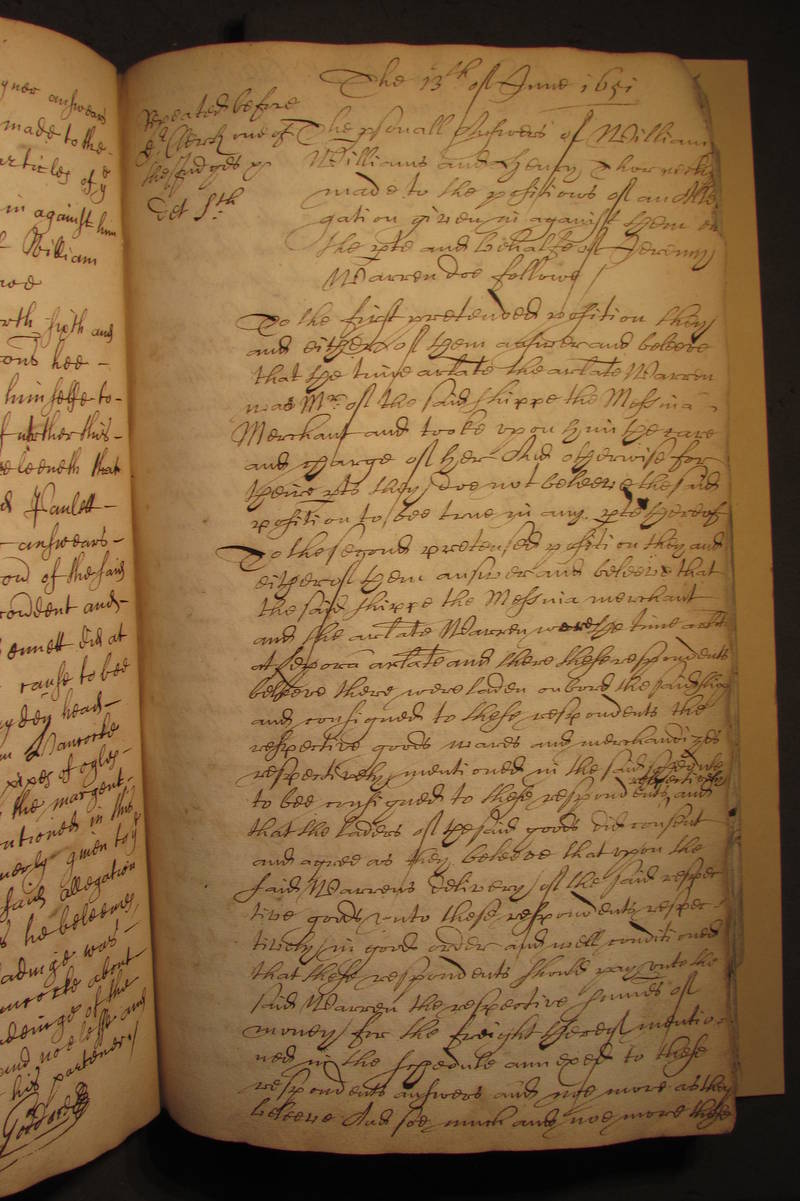 gner answears
made to the
articles of ye
in against him
William
orth sixth and
cons hee -
himselfe to -
further this -
beleeveth that
Paulett -
answears -
of the said
rondent and -
Bennett did at
cause to bee
head -
pipes of
the margent -
entioned in this
merly given to ye
said allegation
he beleeves
about
of the
and noe lesse and
his partener /
The 13th of June 1651
Repeated before
Dr Clerk one of
the Judges
The psonall Answers of William
Williams and Henry Thornecke
made to the positions of an Alle
gation given in against them on
the pte and behalfe of Jeremy
Warren doe followe /
To the first pretended position they
and either of them answer and beleeve
that the time arlate the arlate Warren
was Mr. of the said shippe the Messina
Merchant and tooke upon him the care
and charge of her And otherwise for
theire pts they doe not beleeve the said
position to bee true in any pte thereof
To the second pretensed position they and
either of them answer and beleeve that
the said shippe the Messina merchant
and the arlate Warren were the time arlt
at arlate and there these respondents
beleeve there were laden onbord the said ship
and consigned to these respondents the
respective goods wares and merchandizes
respectively mentioned in the said schedule
respectively
to bee consigned to these respondents, and
that the laders of the said goods did consent
and agree as they beleeve that upon the
said Warrens delivery of the said respec
tive goods unto these respondents respec -
tively in good order and well conditioned
that these respondents should pay unto the
said Warren the respective summes of
money for the freight thereof mentio -
ned in the schedule annexed to these
respondents answers and noe more as they
beleeve And soe much and noe more these